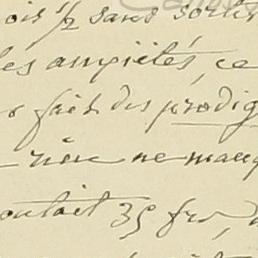 ois 1/2 sans sortir
les anxiétés, ce
fait des prodig
rien ne manq
outait 35 frs,